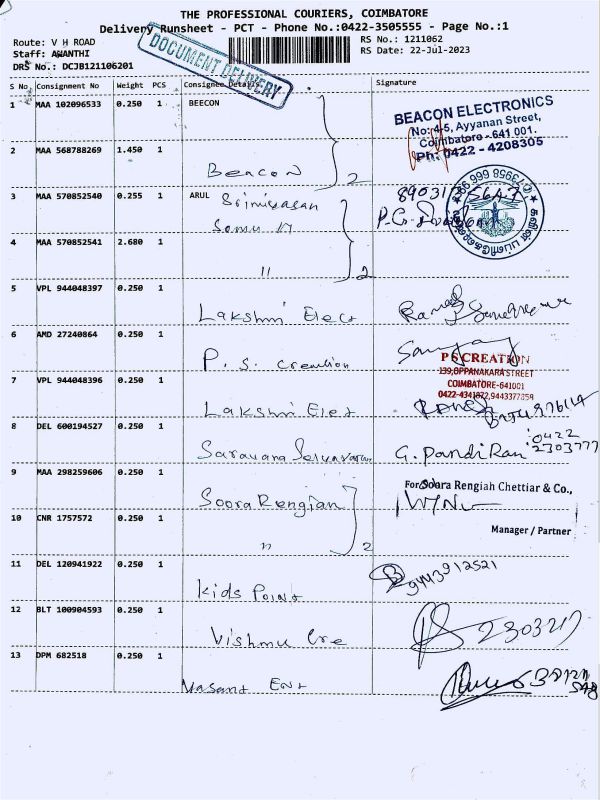 THE PROFESSIONAL COURIERS, COIMBATORE
Delivery Runsheet - PCT - Phone No.:0422-3505555 - Page No.:1
Route: V H ROAD
RS No.: 1211062
Staff: AWANTHI
RS Date: 22-Jul-2023
DRS No.: DCJB121106201
DOCUMENT DELIVERY
S No Consignment No Weight PCS Consignee Details Signature
1 MAA 102096533 0.250 1 BEECON
BEACON ELECTRONICS
No: 4-5, Ayyanan Street,
Coimbatore - 641 001.
Ph: 0422 - 4208305
2 MAA 568788269 1.450 1
Beacon 2
3 MAA 570852540 0.255 1 ARUL Srinivasan
Somu N
4 MAA 570852541 2.680 1
11 2
5 VPL 944048397 0.250 1
Lakshmi Elect
6 AMD 27240864 0.250 1
P. S. Creation
Sanjay
P S CREATION
139,OPPANAKARA STREET
COIMBATORE-641001
0422-4341872,9443377859
7 VPL 944048396 0.250 1
Lakshmi Elect
8 DEL 600194527 0.250 1
Saravana Selvarathn
G. Pandi Ran 0422
2303777
9 MAA 298259606 0.250 1
Soora Rengian
For Soora Rengiah Chettiar & Co.,
10 CNR 1757572 0.250 1
11 2
Manager / Partner
11 DEL 120941922 0.250 1
Kids Point
9443912521
12 BLT 100904593 0.250 1
Vishmu Cre
13 DPM 682518 0.250 1
Vasant Ent